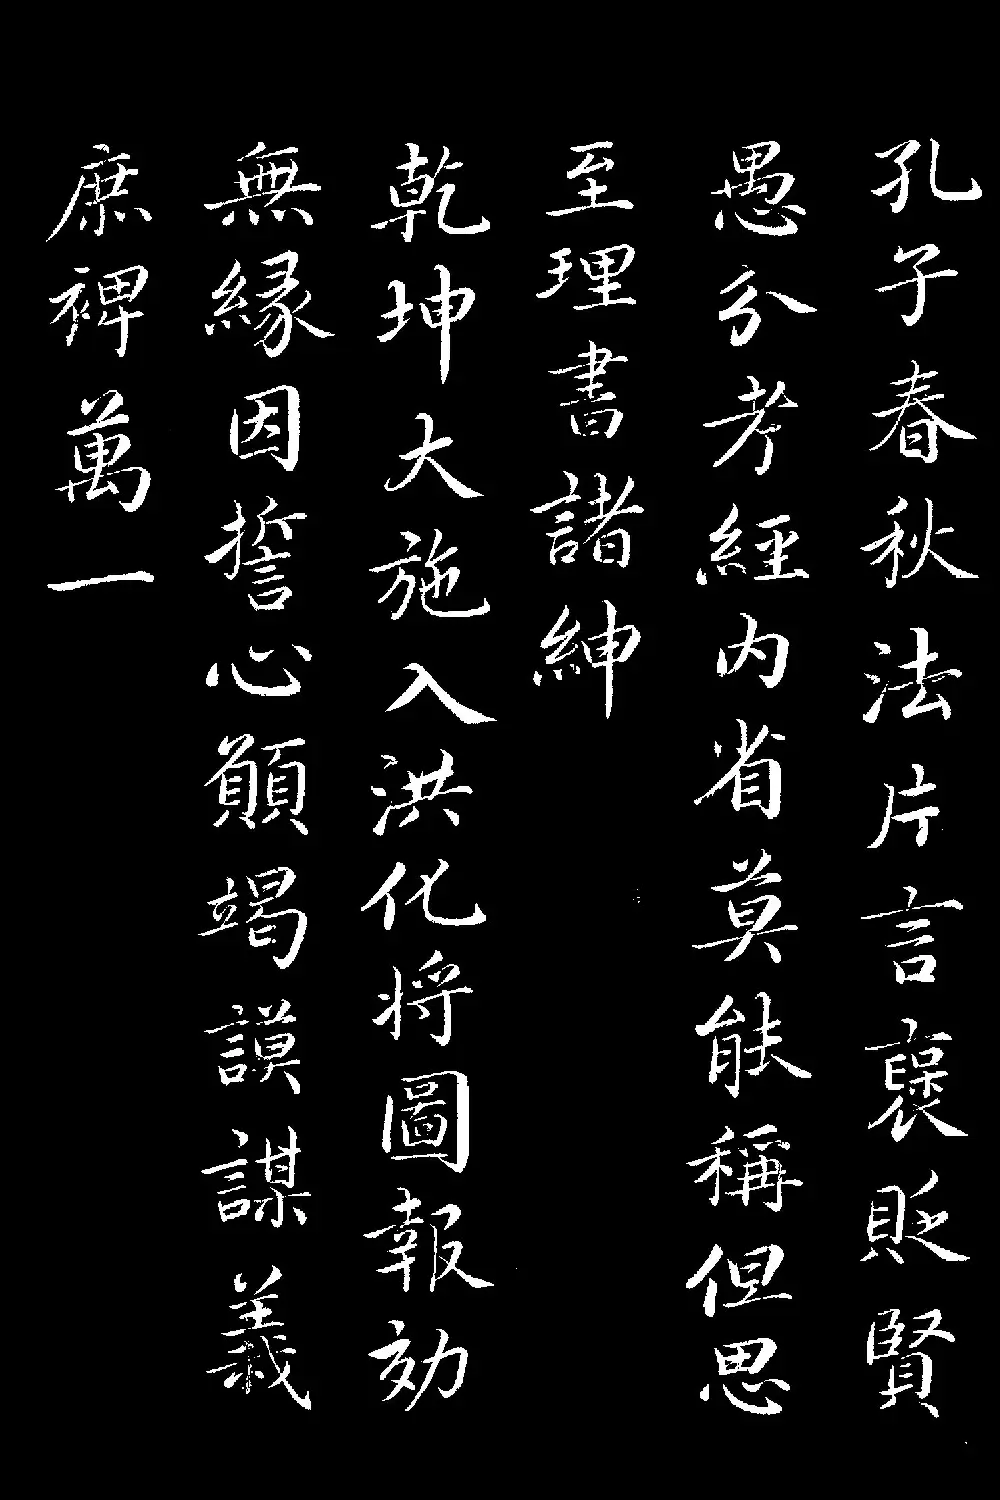 孔子春秋法片言褒貶賢
愚分考經内省莫能稱但思
至理書諸紳
乾坤大施入洪化將圖報効
無緣因誓心願竭謨謀義
庶裨萬一